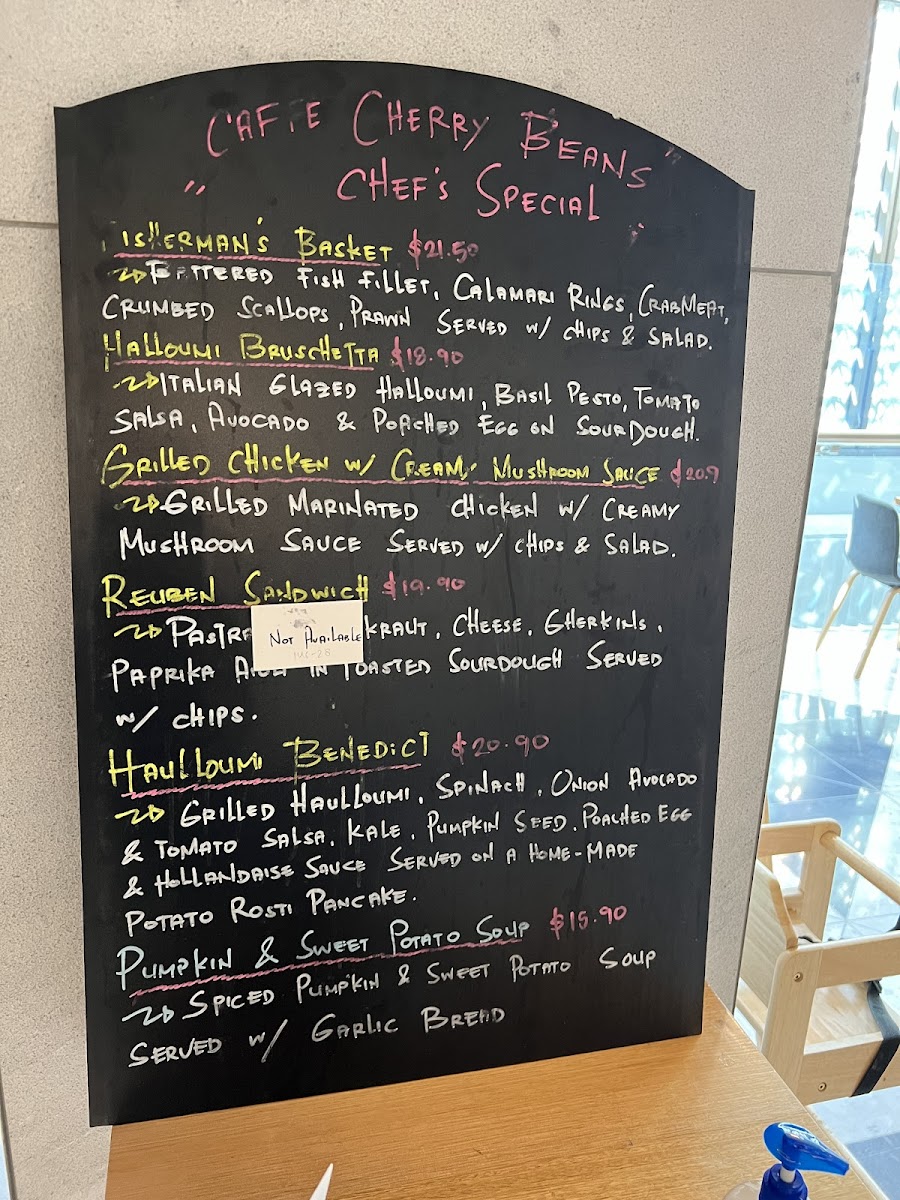 CAFFE CHERRY BEANS
" CHEF'S SPECIAL "
FISHERMAN'S BASKET $21.50
BATTERED FISH FILLET, CALAMARI RINGS, CRABMEAT,
CRUMBED SCALLOPS, PRAWN SERVED W/ CHIPS & SALAD.
HALLOUMI BRUSCHETTA $18.90
ITALIAN GLAZED HALLOUMI, BASIL PESTO, TOMATO
SALSA, AVOCADO & POACHED EGG ON SOURDOUGH.
GRILLED CHICKEN W/ CREAMY MUSHROOM SAUCE $20.9
GRILLED MARINATED CHICKEN W/ CREAMY
MUSHROOM SAUCE SERVED W/ CHIPS & SALAD.
REUBEN SANDWICH $19.90
PASTRA KRAUT, CHEESE, GHERKINS,
NOT AVAILABLE
PAPRIKA IN TOASTED SOURDOUGH SERVED
W/ CHIPS.
HAULLOUMI BENEDICT $20.90
GRILLED HAULLOUMI, SPINACH, ONION AVOCADO
& TOMATO SALSA, KALE, PUMPKIN SEED, POACHED EGG
& HOLLANDAISE SAUCE SERVED ON A HOME-MADE
POTATO ROSTI PANCAKE.
PUMPKIN & SWEET POTATO SOUP $15.90
SPICED PUMPKIN & SWEET POTATO SOUP
SERVED W/ GARLIC BREAD